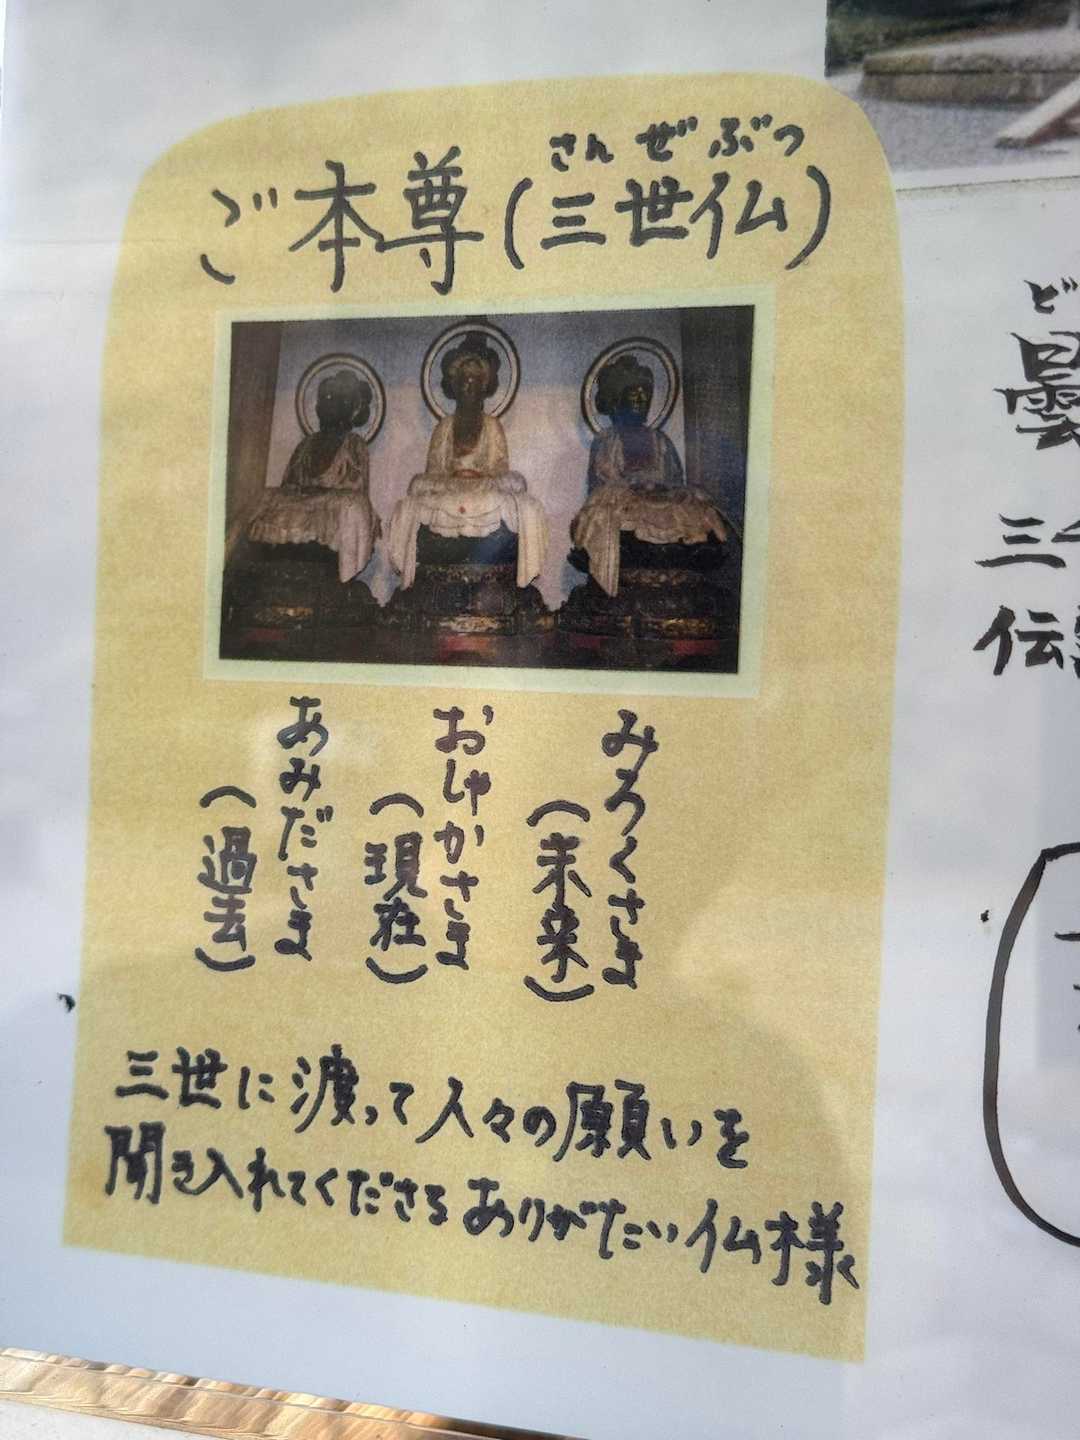 さんぜぶつ
ご本尊(三世仏)
みろくさま
(未来)
おしゃかさま
(現在)
あみださま
(過去)
三世に渡って人々の願いを
聞き入れてくださるありがたい仏様
ど
曇
三
伝